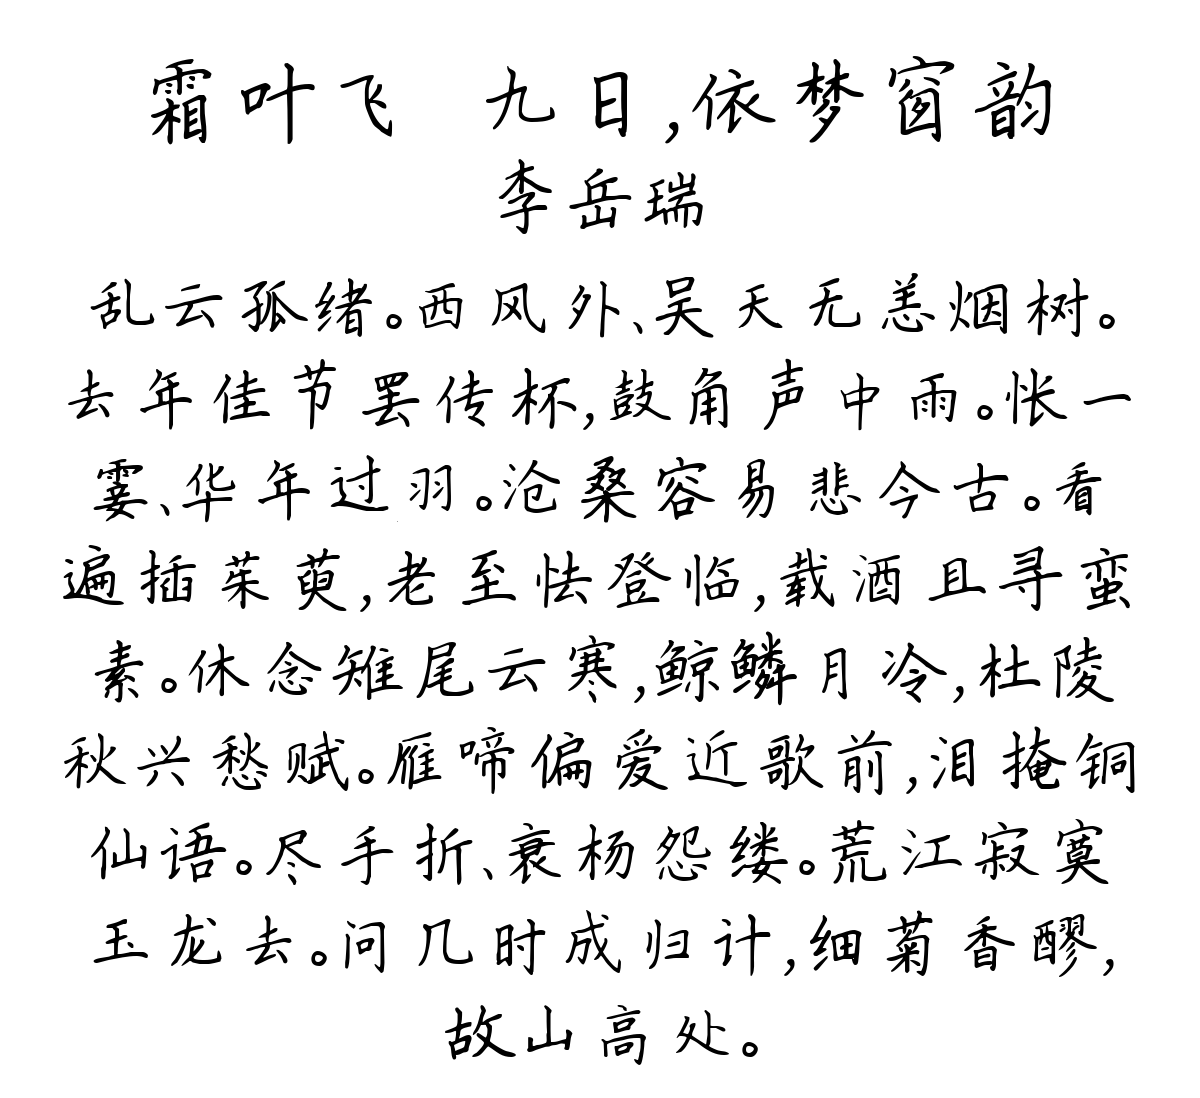 霜叶飞 九日,依梦窗韵
李岳瑞
乱云孤绪。西风外、吴天无恙烟树。
去年佳节罢传杯,鼓角声中雨。怅一
霎、华年过羽。沧桑容易悲今古。看
遍插茱萸,老至怯登临,载酒且寻蛮
素。休念雉尾云寒,鲸鳞月冷,杜陵
秋兴愁赋。雁啼偏爱近歌前,泪掩铜
仙语。尽手折、衰杨怨缕。荒江寂寞
玉龙去。问几时成归计,细菊香醪,
故山高处。